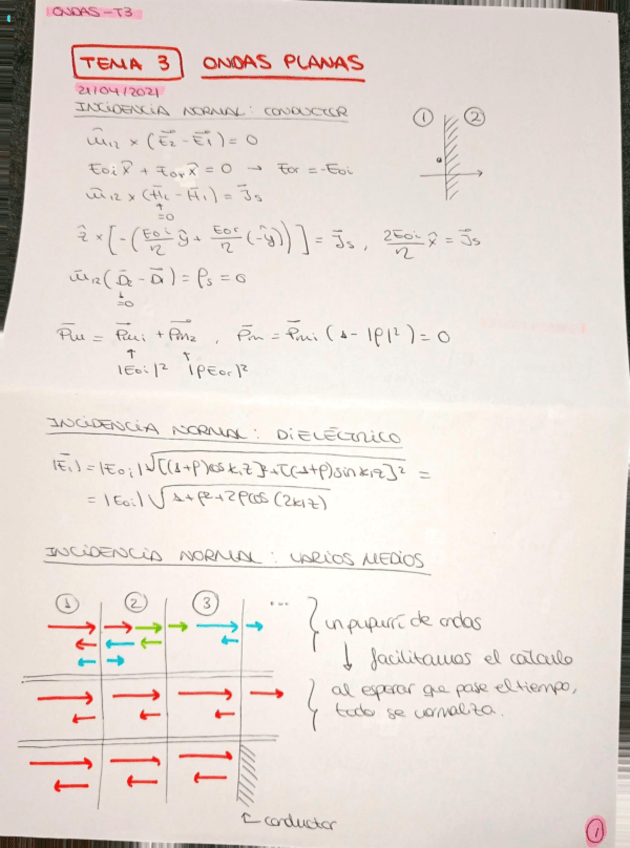 ONDAS-T3
TEMA 3 ONDAS PLANAS
21/04/2021
INCIDENCIA NORMAL: CONDUCTOR
① ②
n̂₁₂ × (E⃗₂ - E⃗₁) = 0
E₀ᵢ x̂ + E₀ᵣ x̂ = 0 → E₀ᵣ = -E₀ᵢ
n̂₁₂ × (H̄₂ - H̄₁) = J̄s
↑
=0
ẑ × [-(E₀ᵢ/η ŷ + E₀ᵣ/η (-ŷ))] = J̄s , 2E₀ᵢ/η x̂ = J̄s
n̂₁₂ (D̄₂ - D̄₁) = ρs = 0
↓
=0
P̄m = P̄mi + P̄m2 , P̄m = P̄mi (1 - |ρ|²) = 0
↑ ↑
|E₀ᵢ|² |ρE₀ᵣ|²
INCIDENCIA NORMAL: DIELÉCTRICO
|E̅₁| = |E₀ᵢ| √[(1+ρ)cos k₁z]² + [(-1+ρ)sin k₁z]² =
= |E₀ᵢ| √1+ρ²+2ρcos(2k₁z)
INCIDENCIA NORMAL: VARIOS MEDIOS
① ② ③ ...
un pupurrí de ondas
↓ facilitamos el cálculo
al esperar que pase el tiempo,
todo se normaliza.
← conductor
1